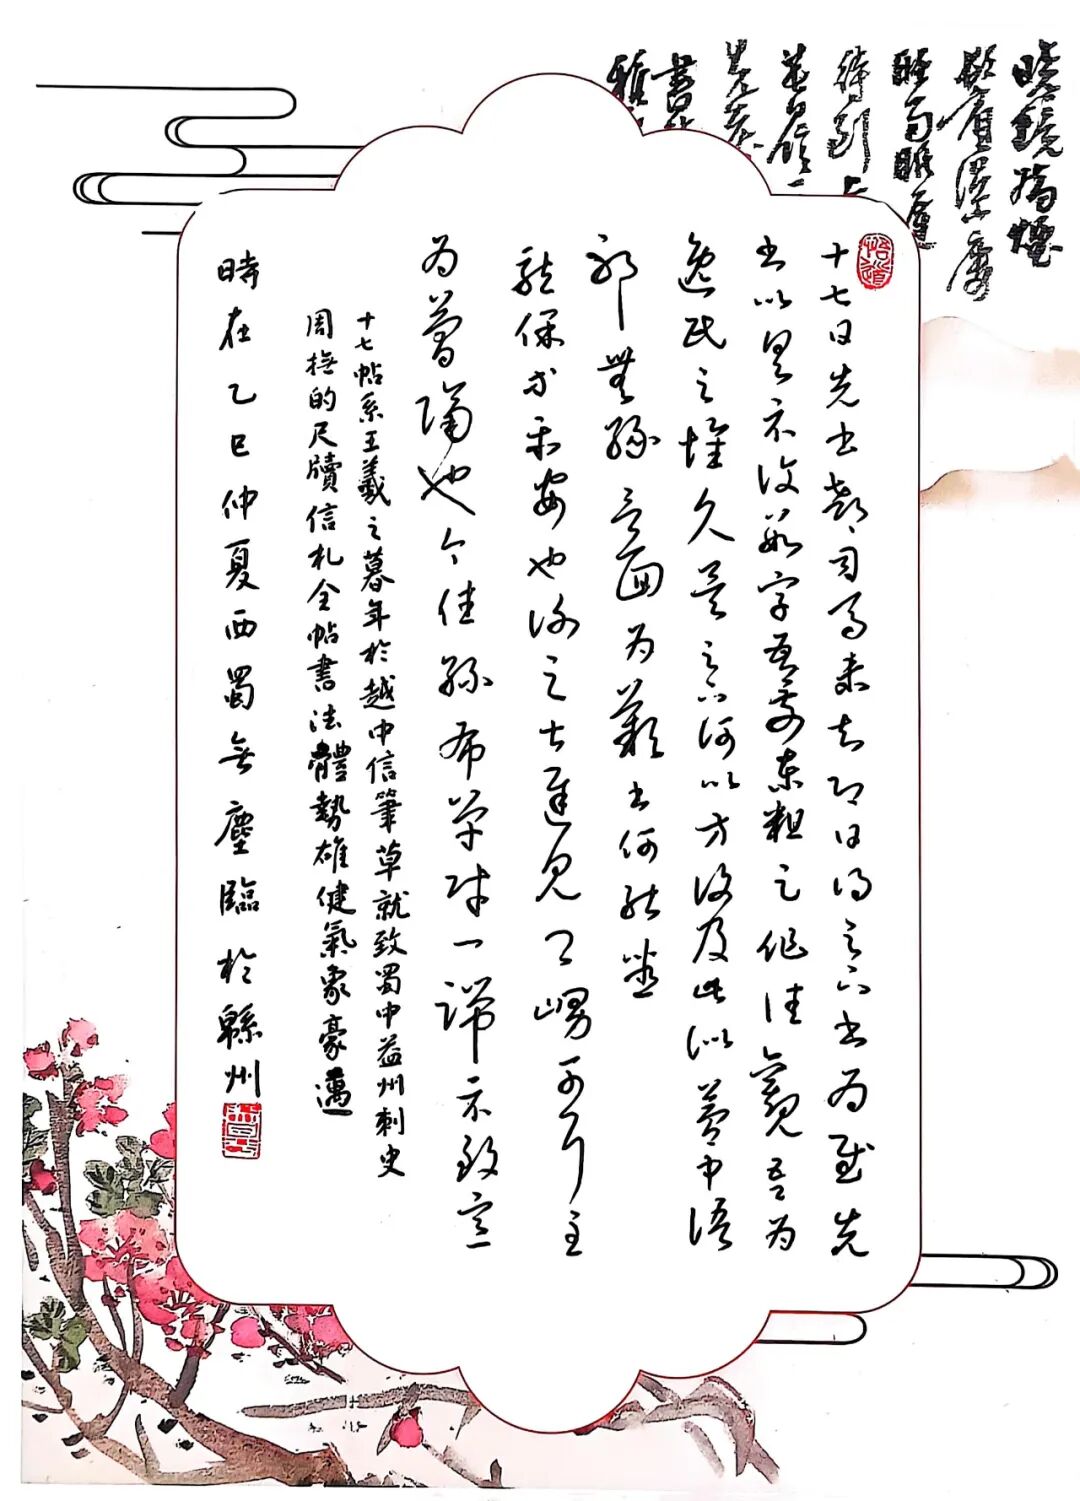 十七日先書郗司馬未去即日得足下書為慰先
書以具示復數字吾前東粗足作佳觀吾為
逸民之懷久矣足下何以方復及此似夢中語
耶無緣言面為歎書何能悉
龍保等平安也謝之甚遲見卿舅可耳至
為簡隔也今往絲布單財一端示致意
十七帖系王羲之暮年於越中信筆草就致蜀中益州刺史
周撫的尺牘信札全帖書法體勢雄健氣象豪邁
時在乙巳仲夏西蜀無塵臨於緜州
悟道